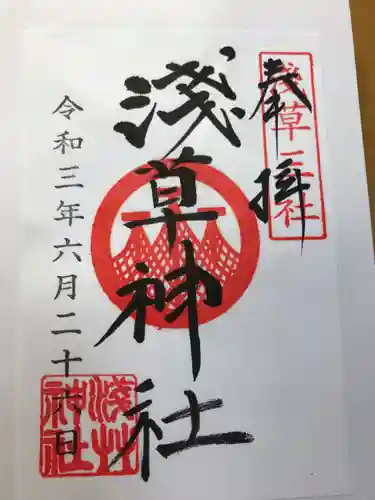 奉拝
淺草三社
淺草神社
令和三年六月二十六日
淺草神社